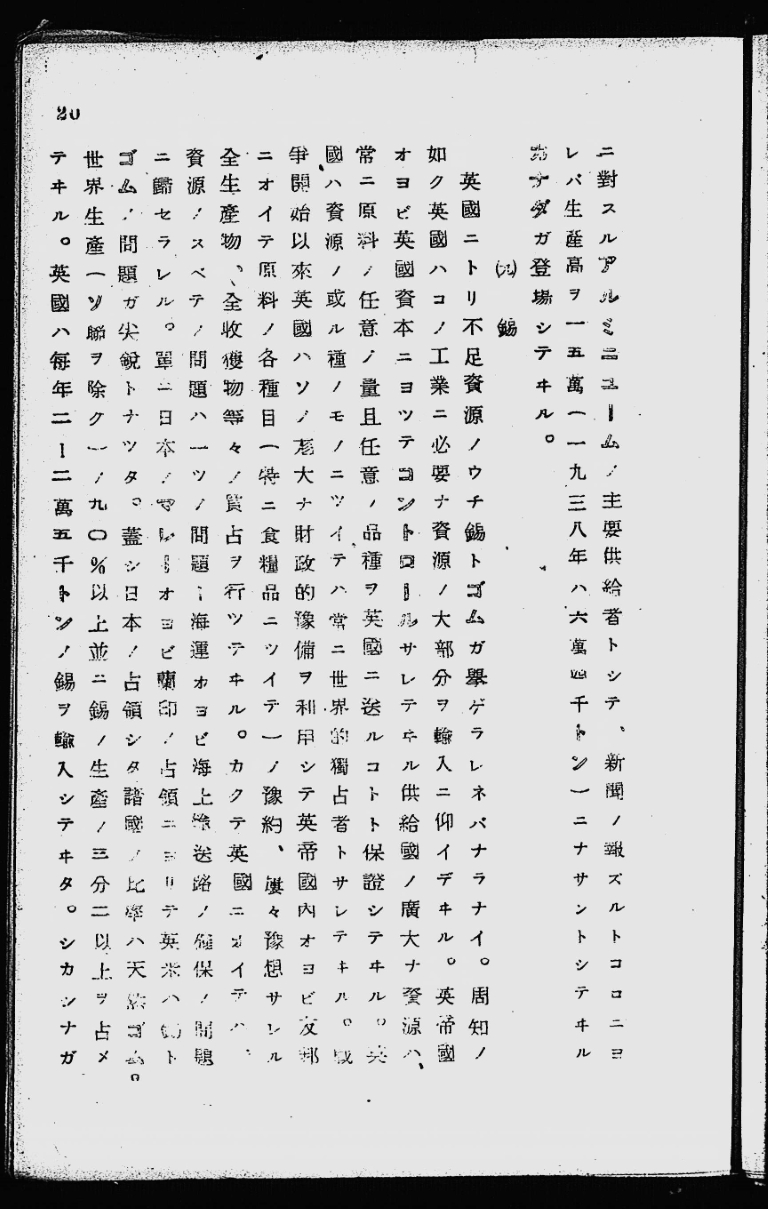 20
ニ對スルアルミニユームノ主要供給者トシテ、新聞ノ報ズルトコロニヨ
レバ生產高ヲ一五萬(一九三八年ハ六萬四千トン)ニナサントシテヰル
カナダガ登場シテヰル。
錫
英國ニトリ不足資源ノウチ錫トゴムガ擧ゲラレネバナラナイ。周知ノ
如ク英國ハコノ工業ニ必要ナ資源ノ大部分ヲ輸入ニ仰イデヰル。英帝國
オヨビ英國資本ニヨツテコントロールサレテヰル供給國ノ廣大ナ資源ハ、
常ニ原料ノ任意ノ量且任意ノ品種ヲ英國ニ送ルコトト保證シテヰル。英
國ハ資源ノ或ル種ノモノニツイテハ常ニ世界的獨占者トサレテヰル。戰
爭開始以來英國ハソノ尨大ナ財政的豫備ヲ利用シテ英帝國內オヨビ友邦
ニオイテ原料ノ各種目(特ニ食糧品ニツイテ)ノ豫約、屢々豫想サレル
全生產物、全收獲物等々ノ買占ヲ行ツテヰル。カクテ英國ニオイテハ、
資源ノスベテノ問題ハ一ツノ問題ー海運オヨビ海上輸送路ノ確保ノ問題
ニ歸セラレル。單ニ日本ノマレーオヨビ蘭印ノ占領ニヨリテ英米ハ錫ト
ゴムノ問題ガ尖銳トナツタ。蓋シ日本ノ占領シタ諸國ノ比率ハ天然ゴム。
世界生產(ソ聯ヲ除ク)ノ九〇%以上並ニ錫ノ生產ノ三分二以上ヲ占メ
テヰル。英國ハ每年二ー二萬五千トンノ錫ヲ輸入シテヰタ。シカシナガ